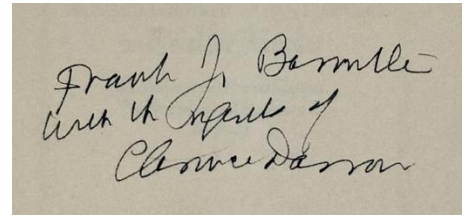 Frank J.
With the regards of
Clarence Darrow